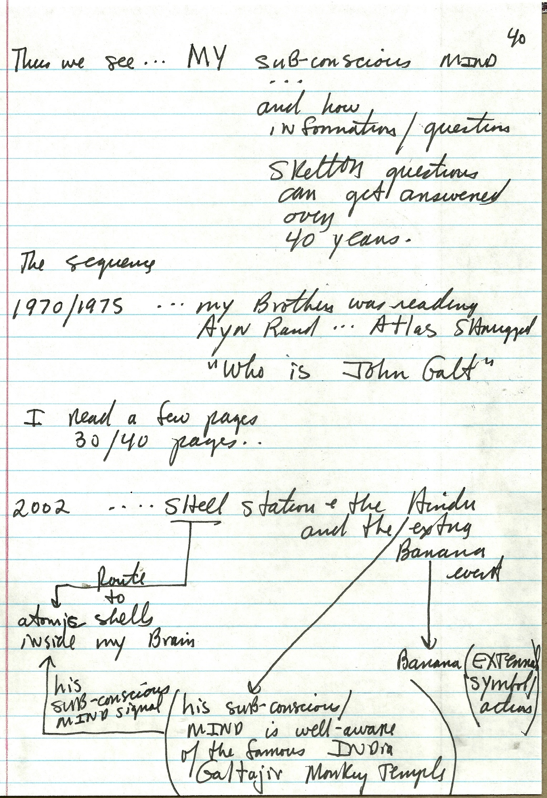 40
Thus we see... MY sub-conscious MIND
...
and how
information/question
Skelton questions
can get answered
over
40 years.
The sequence
1970/1975 ... my Brother was reading
Ayn Rand ... Atlas Shrugged
"Who is John Galt"
I read a few pages
30/40 pages..
2002 ..... Shell station & the Hindu
and the/
Banana
event
Route
to
atomic shells
inside my Brain
Banana (EXTernal
symbol/
action)
his
SUB-conscious
MIND signal
(his sub-conscious/
MIND is well-aware
of the famous INDia
Galtajir Monkey Temple)